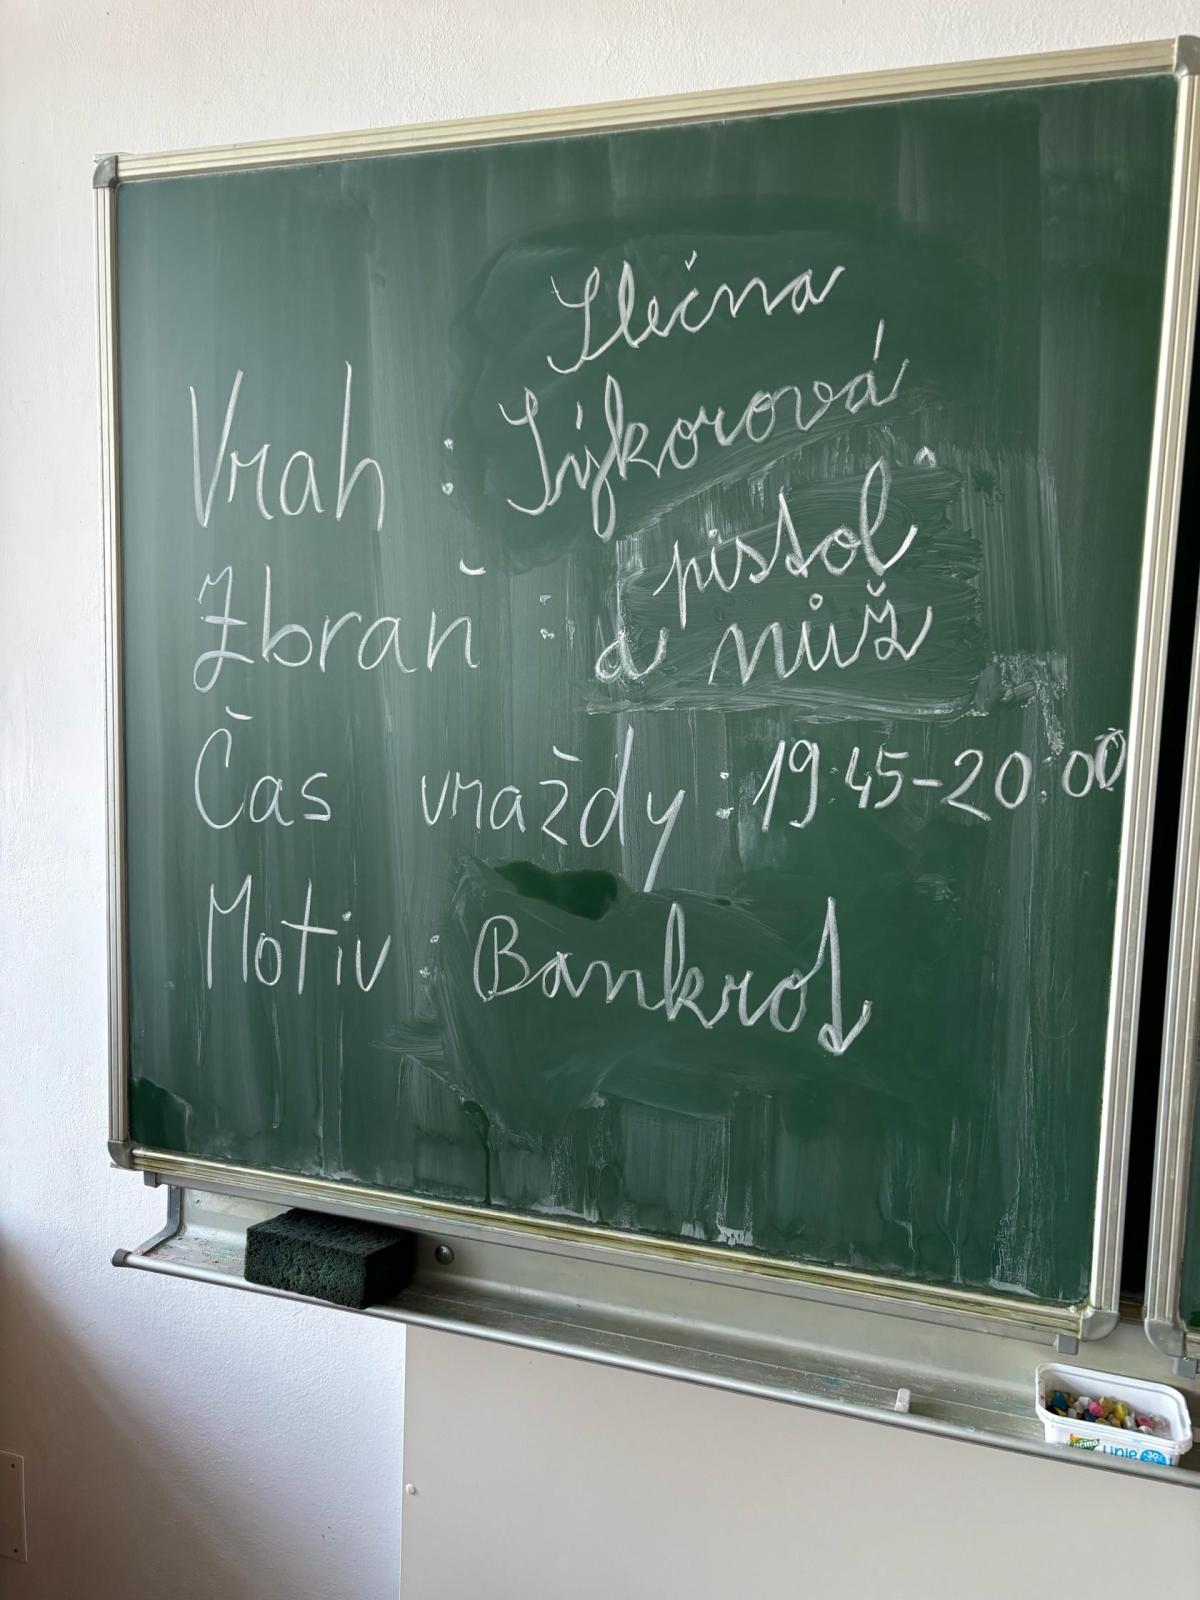 Slečna
Vrah : Sýkorová
pistol
Zbraň : a nůž
Čas vraždy : 19:45-20:00
Motiv : Bankrot
Linie